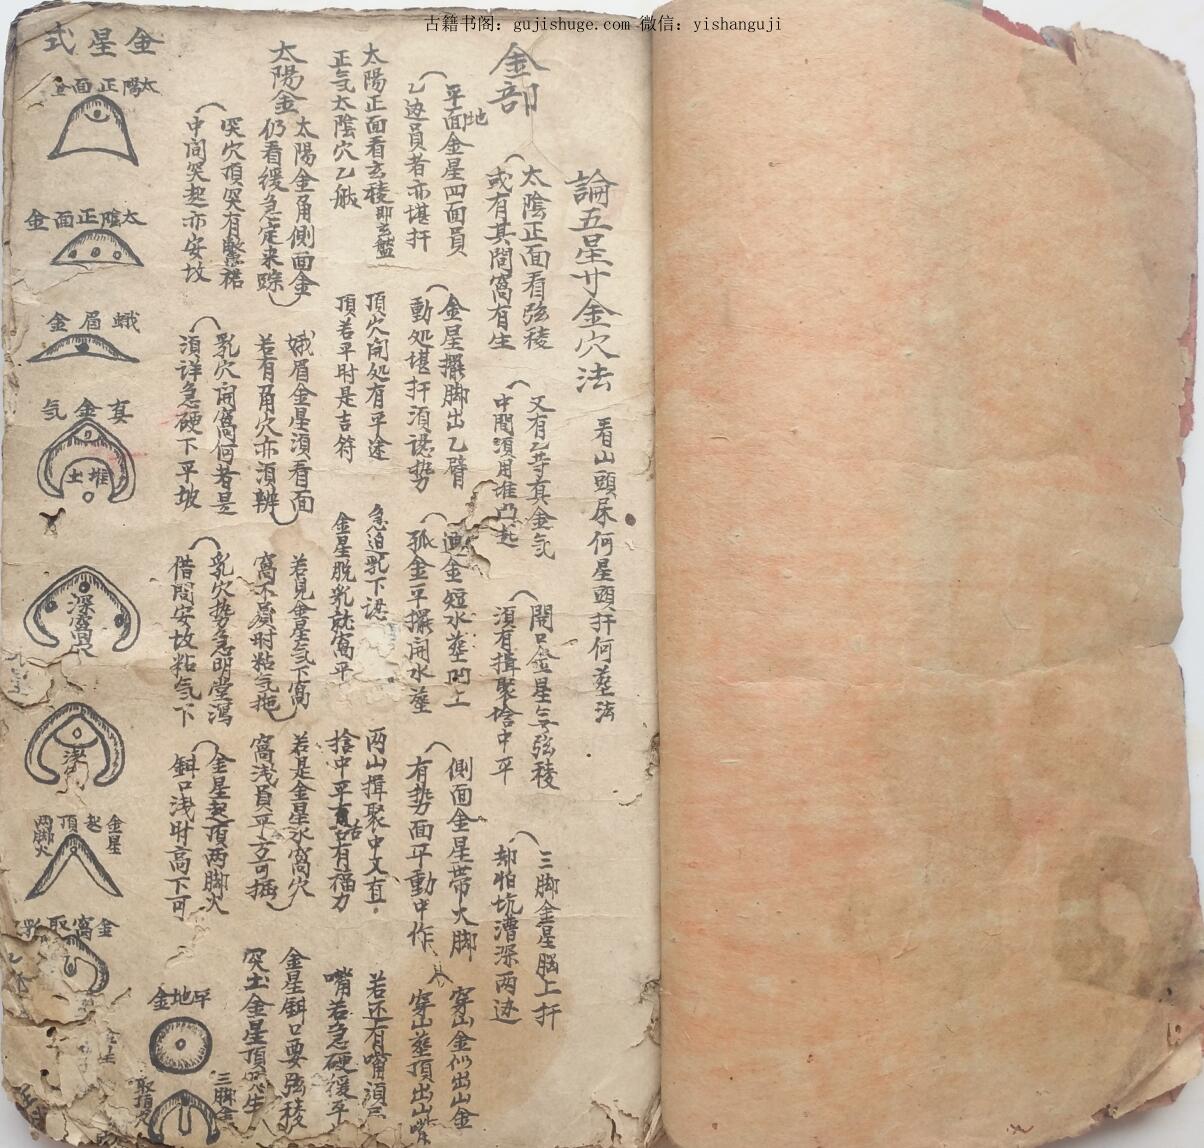 古籍书阁：gujishuge.com 微信：yishanguji
論五星寸金穴法
看山頭屎何星頭扦何塟法
金部
太陰正面看弦稜
或有其間窩有生
又有乙等真金气
中間須用堆凸起
開口金星無弦稜
須有揖聚捨中平
三脚金星脳上扦
却怕坑漕深两边
平面金星四面員
地
乙边員者亦堪扦
金星擺脚出乙臂
動処堪扦須認势
連金短水塟凹上
孤金平擺開水塟
側面金星帶火脚
有势面平動中作
穿山金似出山金
穿山塟頂出山嘴
太陽正面看玄稜
正气太陰穴乙般
頂穴開処有平途
頂若平时是吉符
急迫乳下認
金星脱乳就窩平
两山揖聚中又直
捨中平有福力
若还有嘴須
嘴若急硬緩平
太陽金
太陽金角側面金
仍看緩急定来踪
娥眉金星須看面
若有角穴亦須辨
若見金星气下窩
窩不員时粘气拖
若是金星水窩穴
窩浅員平方可插
金星鉗口要弦稜
突土金星頂
突穴頂突有繫裙
中间突起亦安坟
乳穴開窩何者是
須详急硬下平坡
乳穴势急明堂瀉
借間安坟粘气下
金星起頂两脚火
鉗口浅时高下可
金星式
太陽正面金
太陰正面金
蛾眉金
真金气
堆土
深窩穴
浅
金星起頂两脚火
金窩取
平地金
三脚金
取頂穴